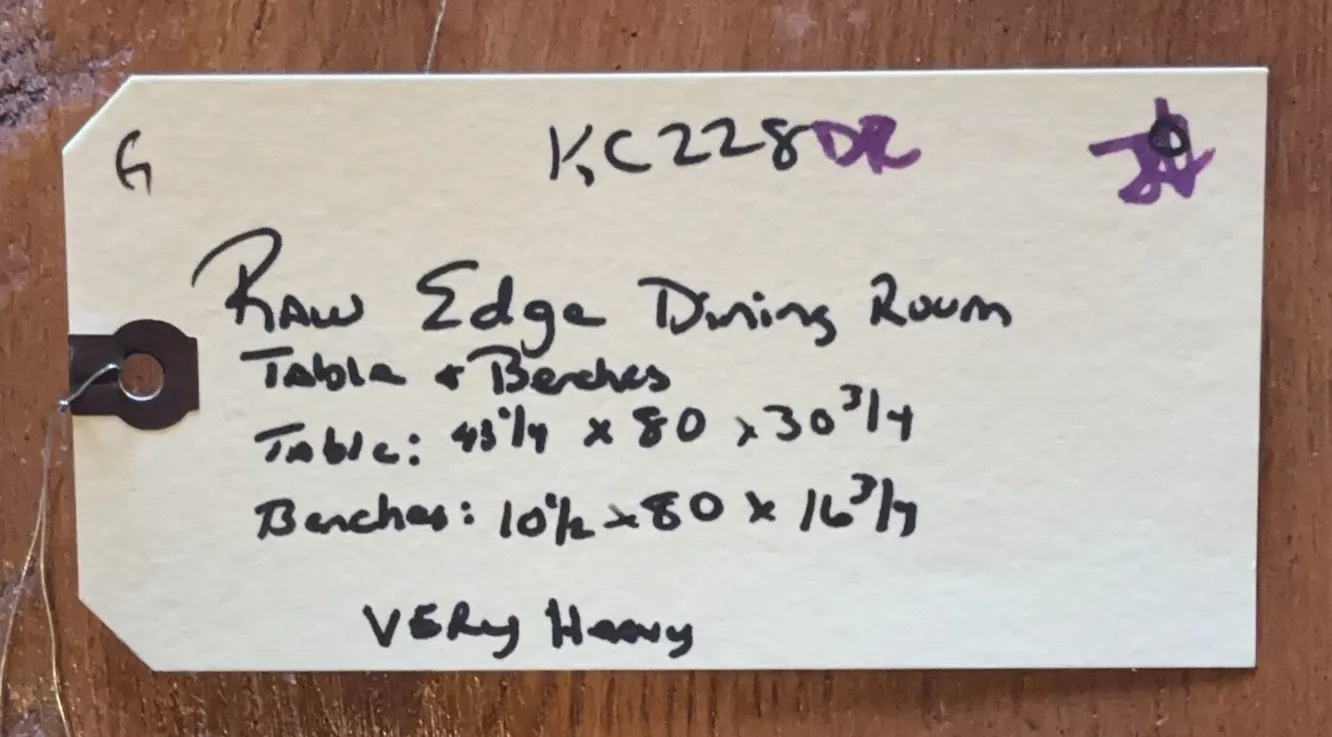 G KC228DR
Raw Edge Dining Room
Table & Benches
Table: 43 1/4 x 80 x 30 3/4
Benches: 10 1/2 x 80 x 16 3/4
VERy Heavy